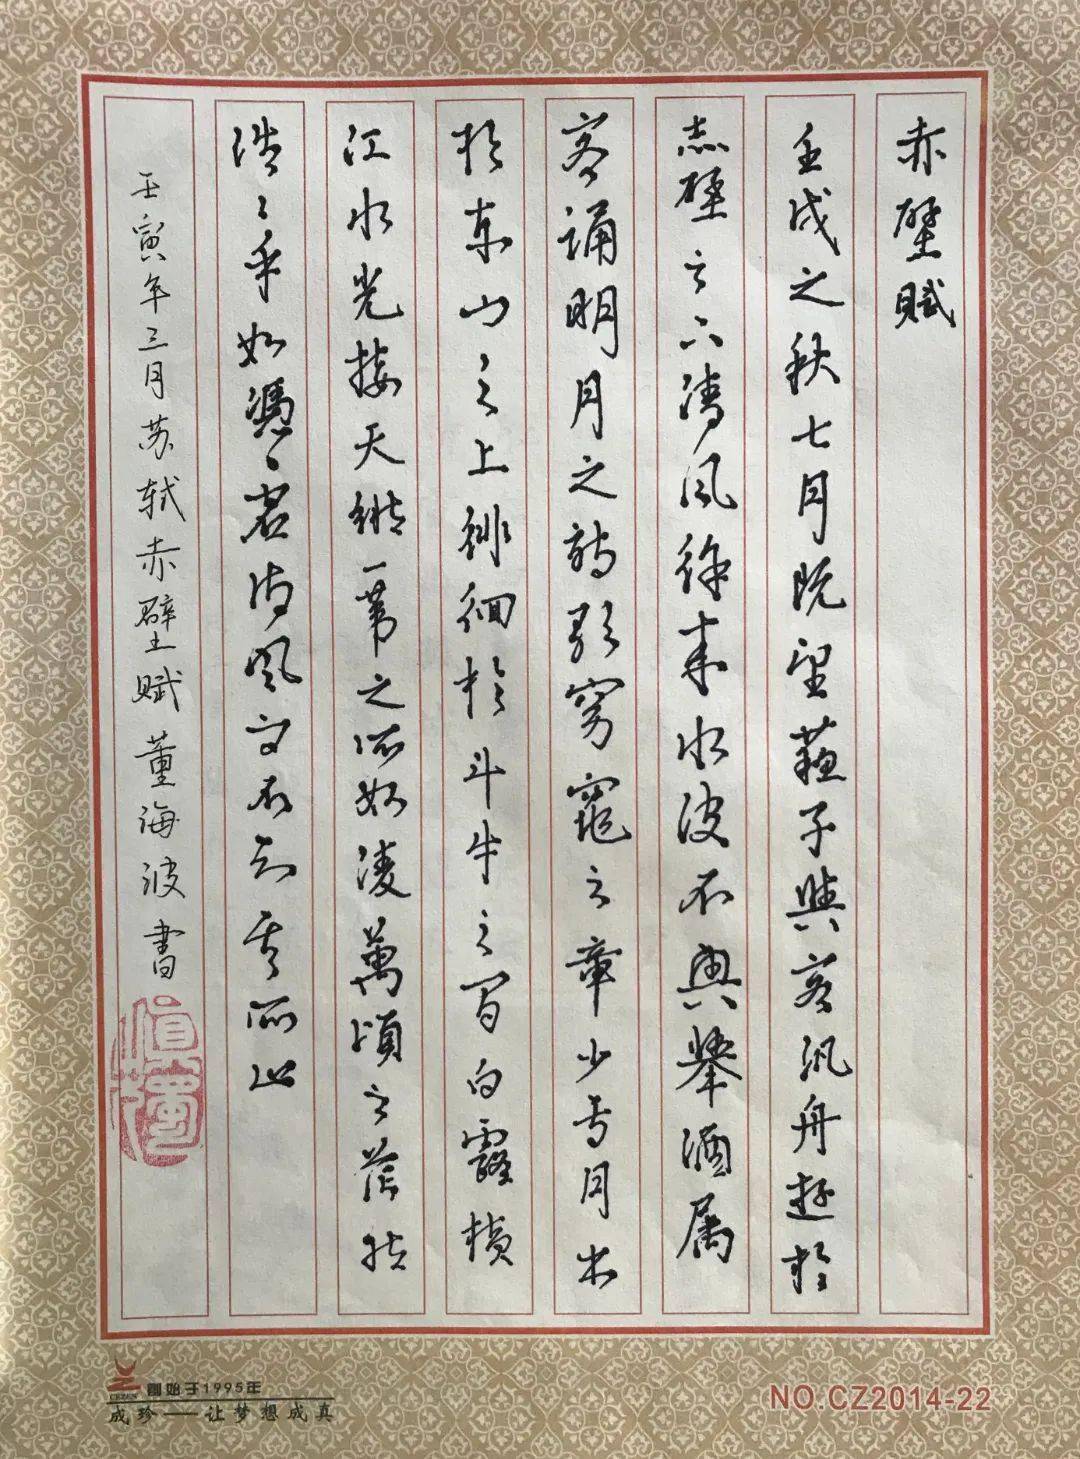 赤壁赋
壬戌之秋七月既望蘇子與客汎舟遊於
赤壁之下清风徐来水波不興舉酒属
客诵明月之诗歌窈窕之章少焉月出
於东山之上徘徊於斗牛之间白露横
江水光接天纵一苇之所如凌萬頃之茫然
浩〻乎如憑虚御风而不知其所止
壬寅年三月苏轼赤壁赋董海波書
創始于1995年
成珍——让梦想成真
NO.CZ2014-22